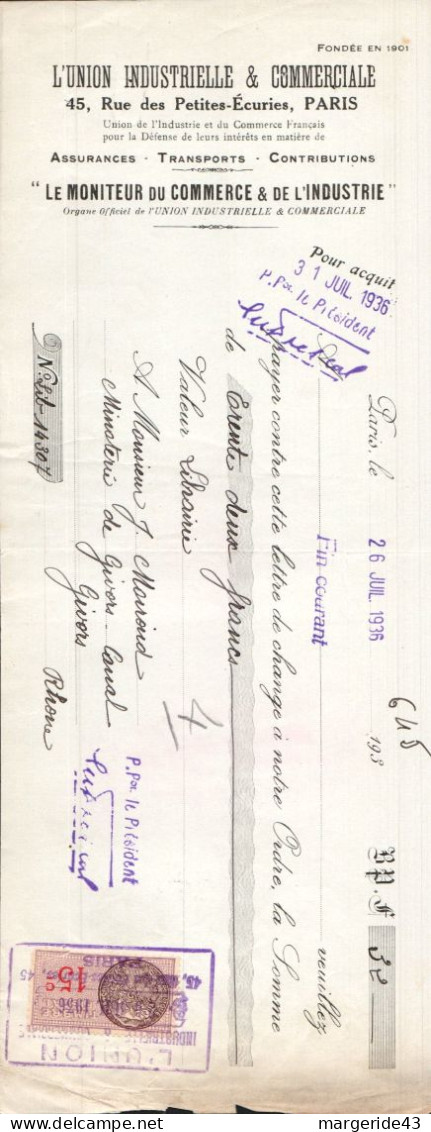 FONDÉE EN 1901
L'UNION INDUSTRIELLE & COMMERCIALE
45, Rue des Petites-Écuries, PARIS
Union de l'Industrie et du Commerce Français
pour la Défense de leurs intérêts en matière de
ASSURANCES · TRANSPORTS · CONTRIBUTIONS
"LE MONITEUR DU COMMERCE & DE L'INDUSTRIE"
Organe Officiel de l'UNION INDUSTRIELLE & COMMERCIALE
Pour acquit
31 JUIL 1936
P. Pon le Président
648
Paris, le 26 JUIL 1936 193 B.P.F 32
Fin courant veuillez
payer contre cette lettre de change à notre Ordre, la Somme
de Trente deux francs
Valeur Librairie
4
A Monsieur J. Moiroud
Minoterie de Givors-Canal
Givors Rhône
P. Pon le Président
14307
15c
1936
L'UNION
INDUSTRIELLE
PARIS
margeride43